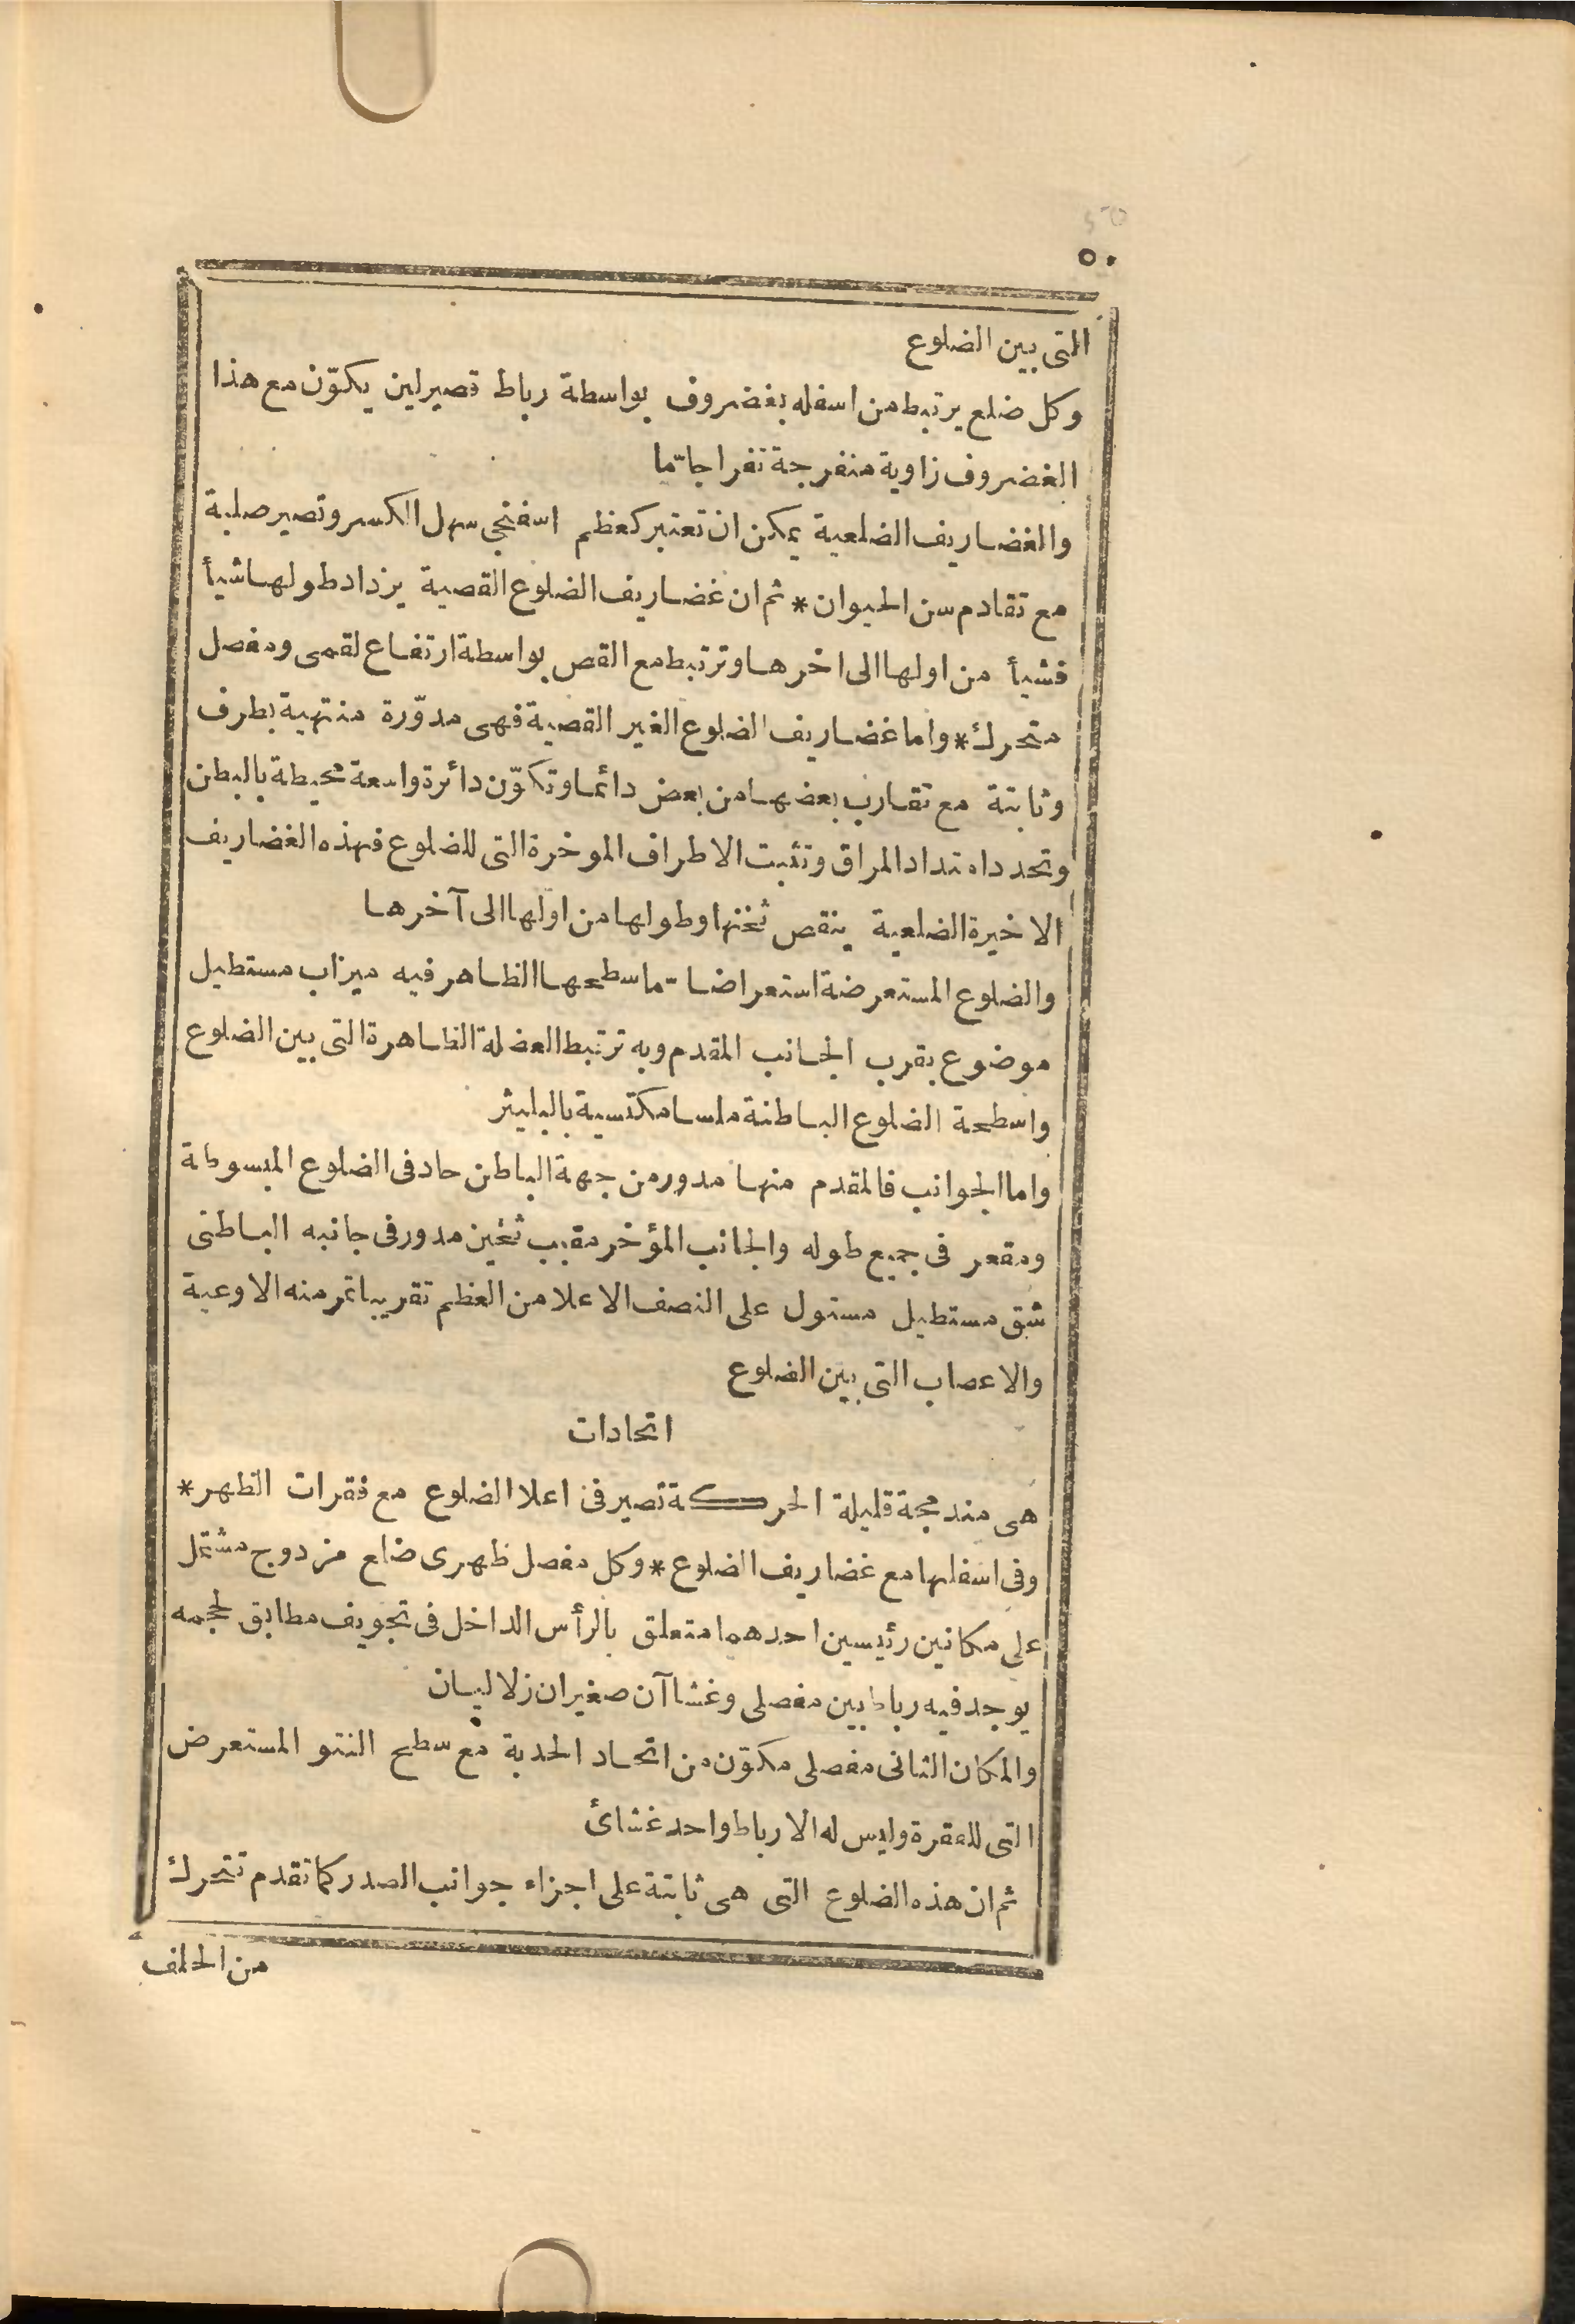 ٥٠
التى بين الضلوع
وكل ضلع يرتبط من اسفله بغضروف بواسطة رباط قصير لين يكوّن مع هذا
الغضروف زاوية منفرجة تفراجا تما
والغضاريف الضلعية يمكن ان تعتبر كعظم اسفنجى سهل الكسر وتصير صلبة
مع تقادم سن الحيوان * ثم ان غضاريف الضلوع القصية يزداد طولها شيأ
فشيأ من اولها الى اخرها وترتبط مع القص بواسطة ارتفاع لقمى ومفصل
متحرك * واما غضاريف الضلوع الغير القصية فهى مدوّرة منتهية بطرف
وثابتة مع تقارب بعضها من بعض دائما وتكوّن دائرة واسعة محيطة بالبطن
وتحدد امتداد المراق وتثبت الاطراف الموخرة التى للضلوع فهذه الغضاريف
الاخيرة الضلعية ينقص ثخنها وطولها من اولها الى آخرها
والضلوع المستعرضة استعراضا تما سطحها الظاهر فيه ميزاب مستطيل
موضوع بقرب الجانب المقدم وبه ترتبط العضلة الظاهرة التى بين الضلوع
واسطحة الضلوع الباطنة ملسا مكتسية بالبليثر
واما الجوانب فالمقدم منها مدور من جهة الباطن حاد فى الضلوع المبسوطة
ومقعر فى جميع طوله والجانب المؤخر مقبب ثخين مدور فى جانبه الباطنى
شق مستطيل مستول على النصف الاعلا من العظم تقريبا تمر منه الاوعية
والاعصاب التى بين الضلوع
اتحادات
هى مندمجة قليلة الحركة تصير فى اعلا الضلوع مع فقرات الظهر *
وفى اسفلها مع غضاريف الضلوع * وكل مفصل ظهرى ضلع مزدوج مشتمل
على مكانين رئيسين احدهما متعلق بالرأس الداخل فى تجويف مطابق لحجمه
يوجد فيه رباط بين مفصلى وغشاآن صغيران زلاليان
والمكان الثانى مفصلى مكوّن من اتحاد الحدبة مع سطح النتو المستعرض
التى للفقرة وليس له الا رباط واحد غشائ
ثم ان هذه الضلوع التى هى ثابتة على اجزاء جوانب الصدر كما تقدم تتحرك
من الخلف